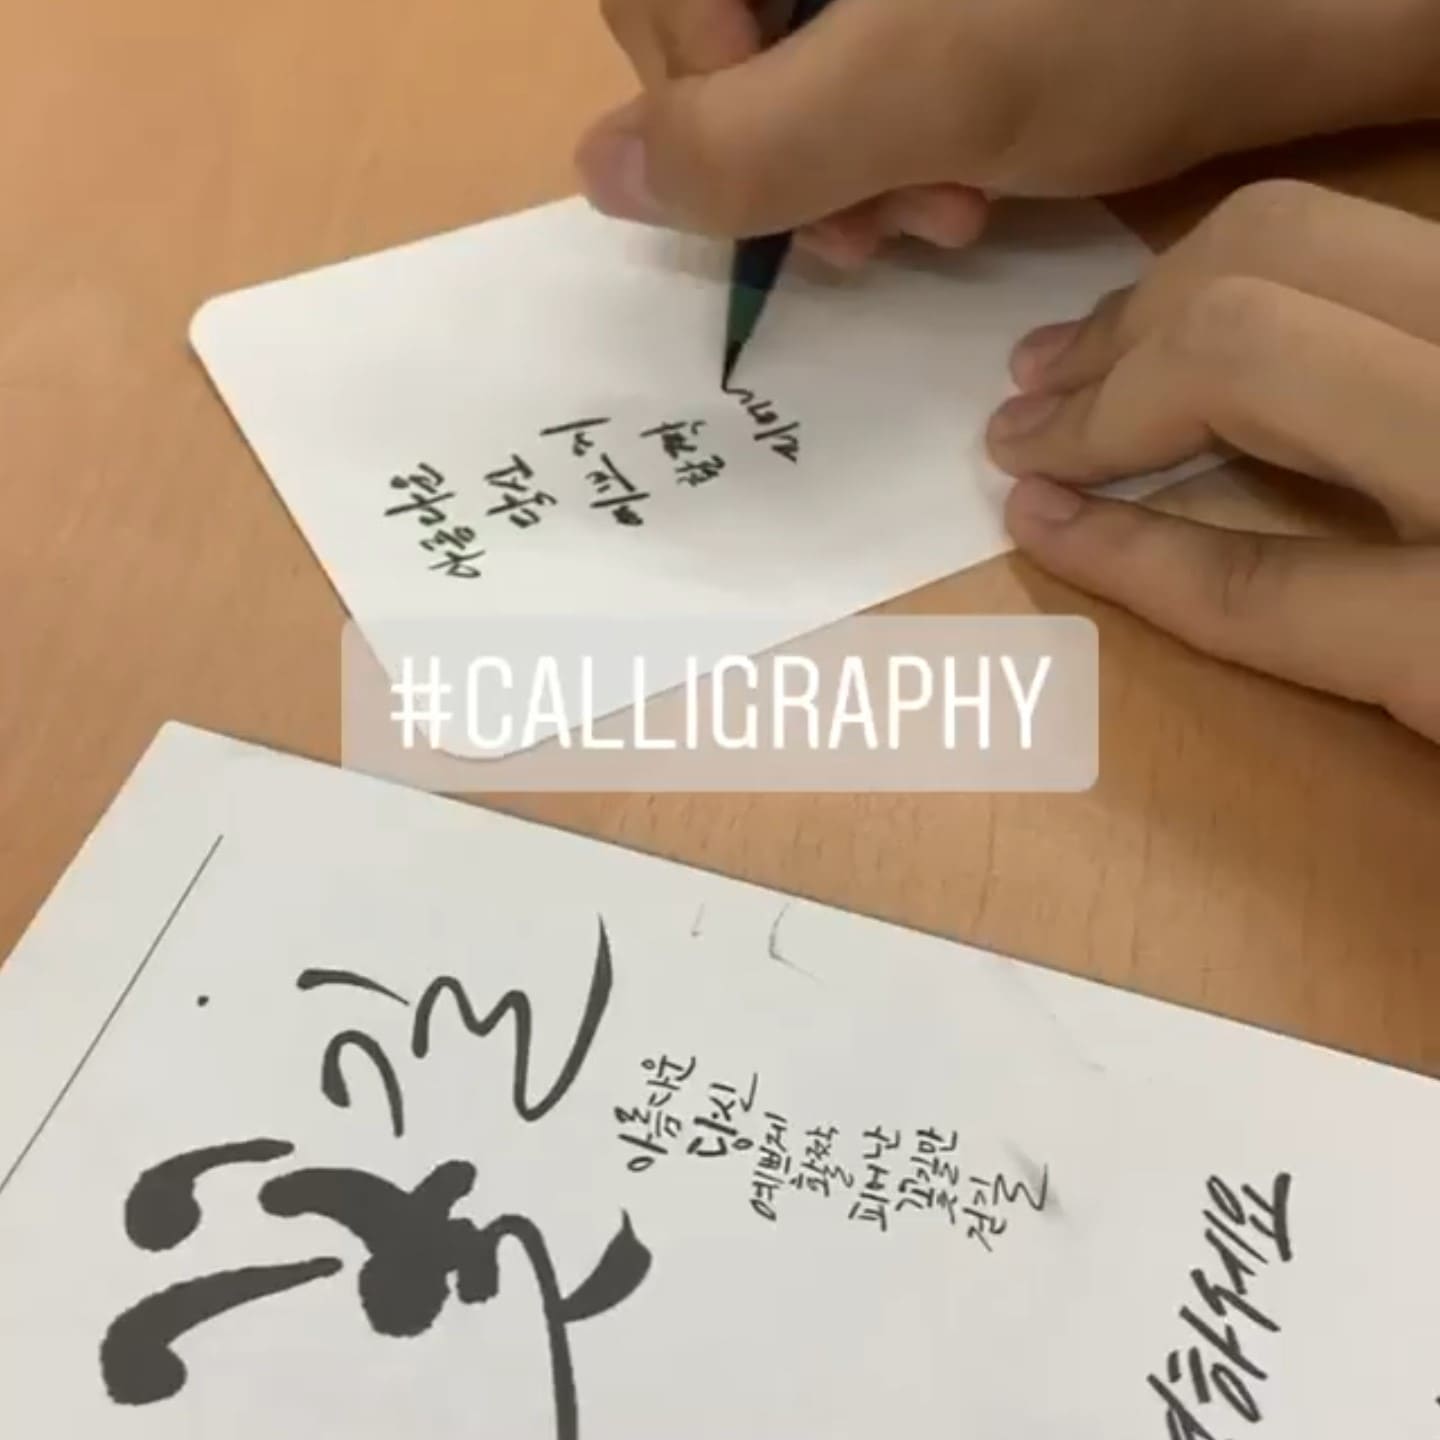 아름다운
당신
예쁘게
활짝
피어
#CALLIGRAPHY
꽃길
아름다운
당신
예쁘게
활짝
피어난
꽃길만
걷길
하세요